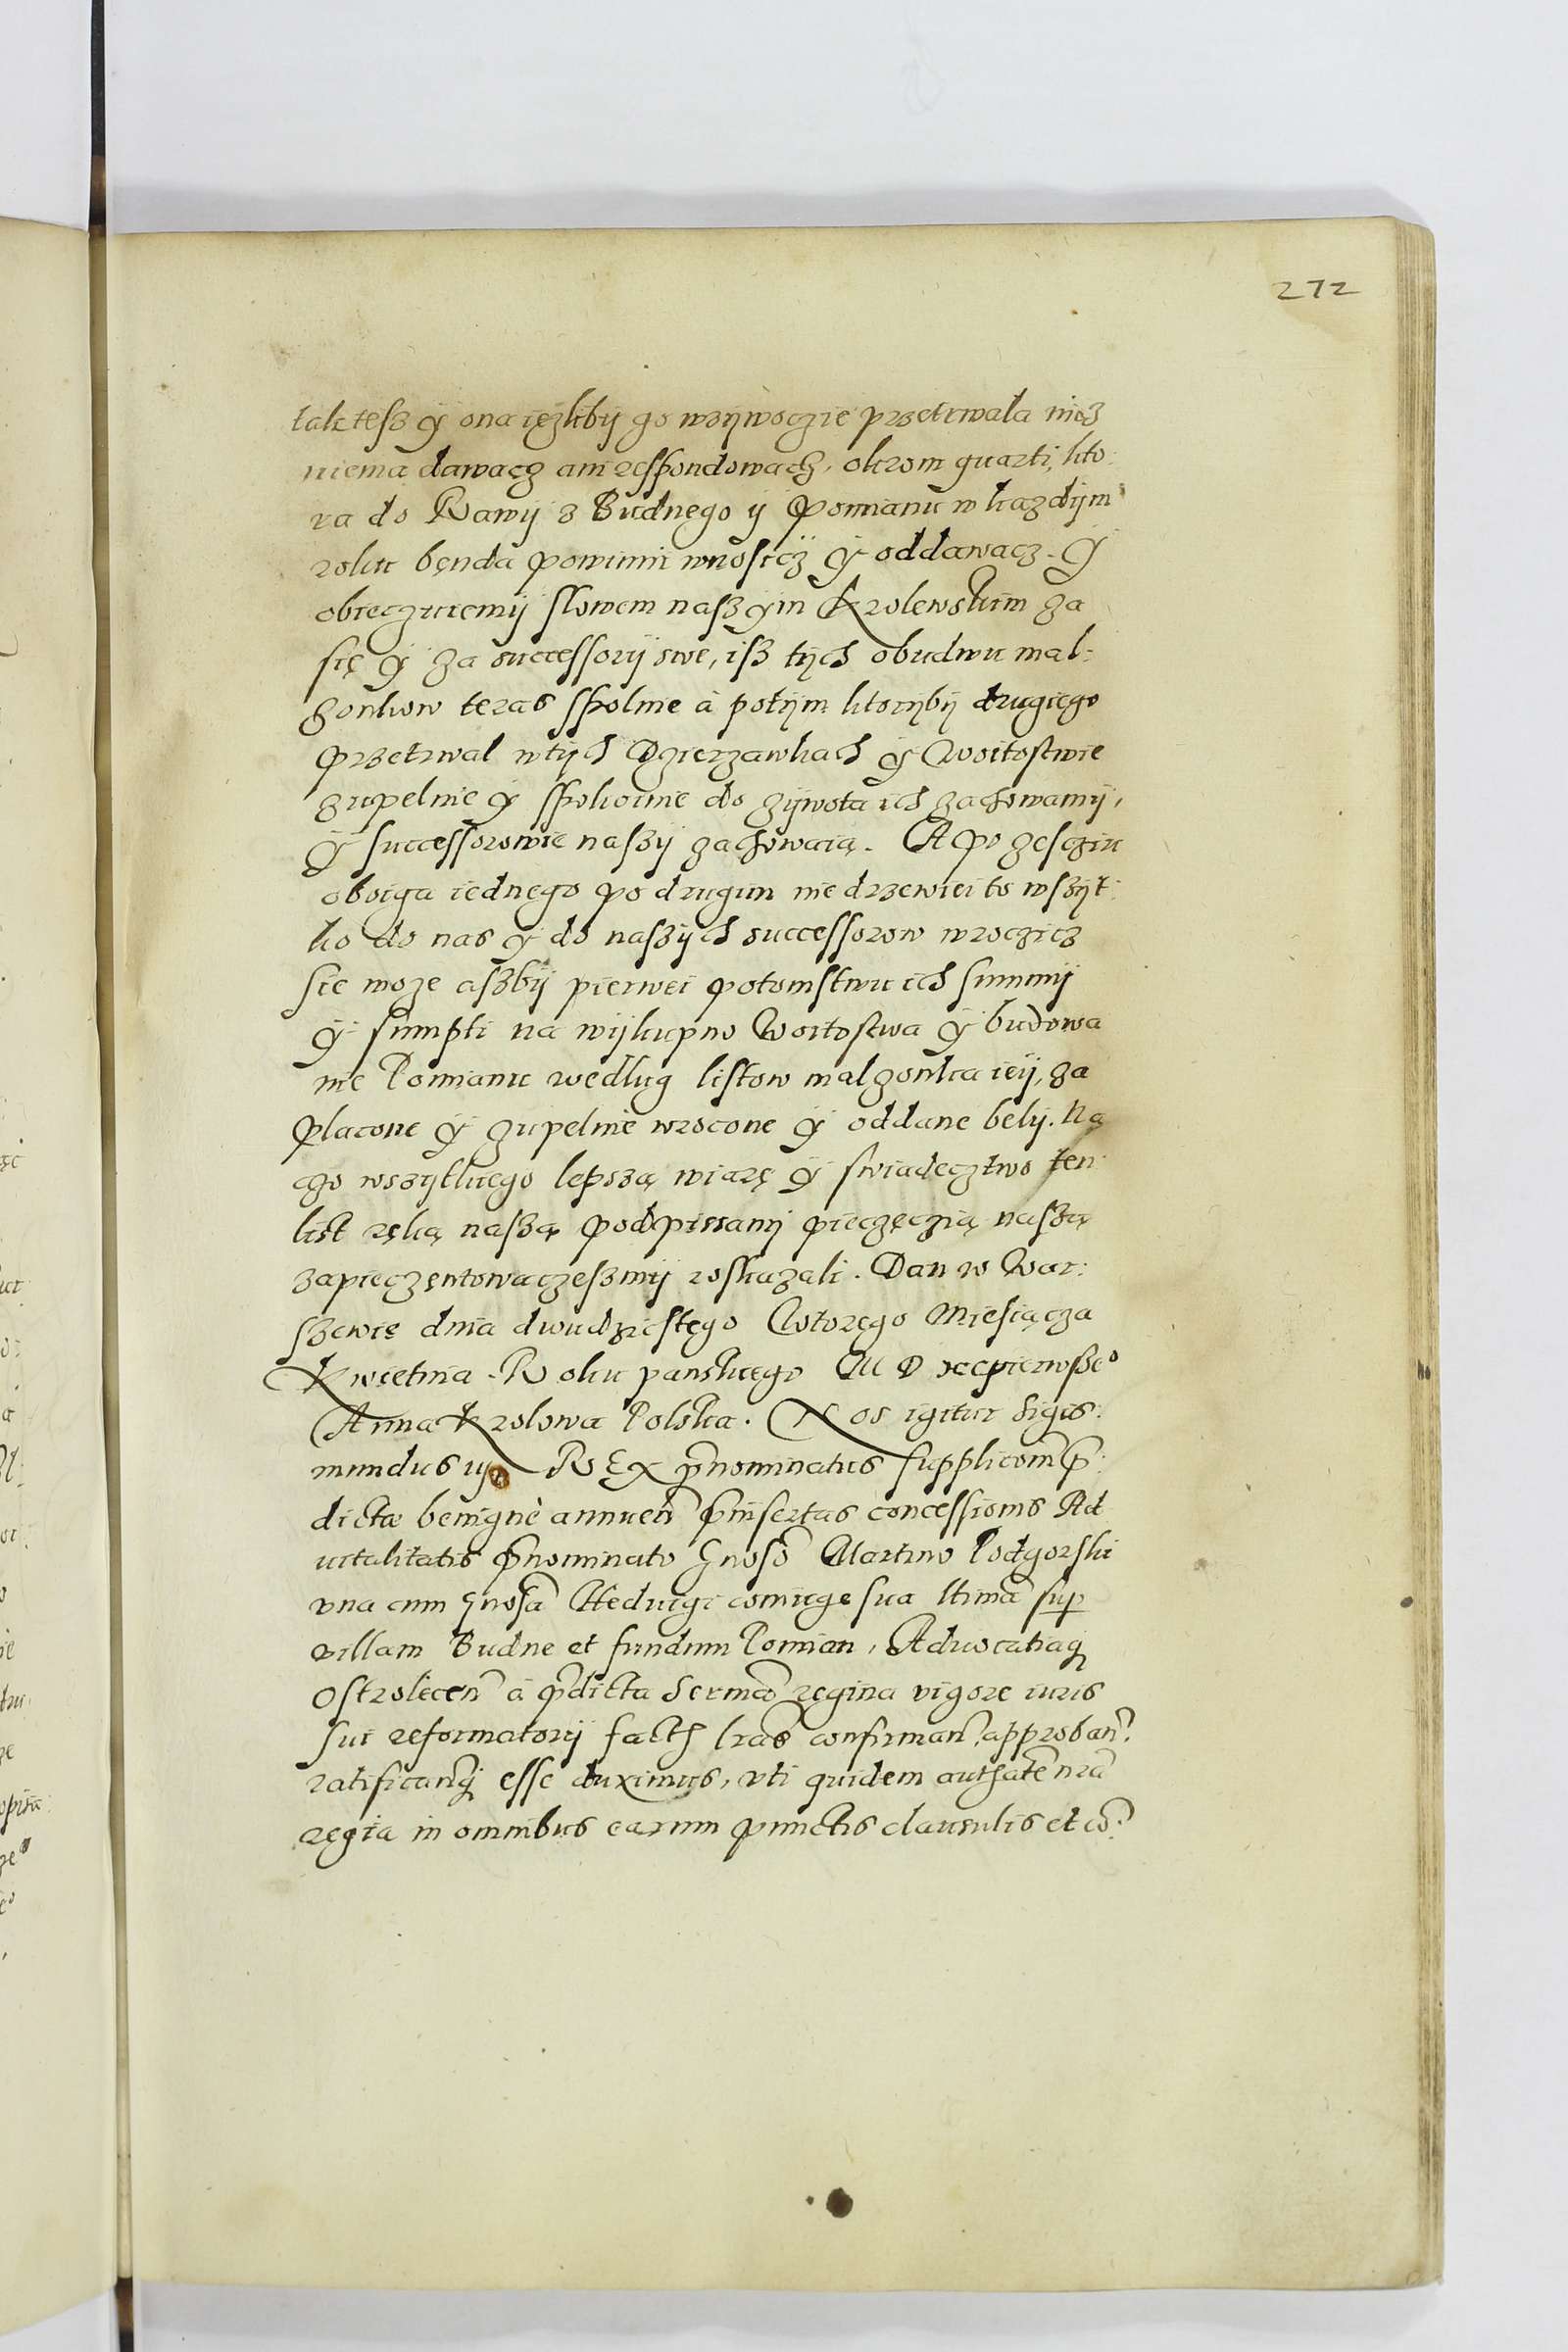 272
tak tesz y ona ięzliby go wzywoczie przetrwala nicz
niema dawacz ani respondowach, okrom quarti, kto:
ra do Rawij z Budnego ij Pomianu w kazdijm
roku bęnda powinni wnosicz ÿ oddawacz. ÿ
obieczuiemij słowem naszÿm Krolewskim za
się ÿ za successorij swe, isz tijch obudwu mal:
zonkow teraz spolnie à potijm ktorijbij drugiego
przetrwal wtijch Dzierzawkach ÿ Woitostwie
zupelnie ÿ spokoinie do zijwota ich zachowamij,
ÿ successorowie naszij zachowaią. A po zesczÿu
oboiga iednego po drugim nie drzewiei to wszijt:
ko do nas ÿ do naszijch successorow wroczicz
sie moze aszbij pierwei potomstwu ich summij
ÿ sumpti na wijkupno Woitostwa ÿ budowa
nie Pomianu wedlug listow malzonka ieij, za
placone ÿ zupelnie wrocone ÿ oddane belij. Na
czo wszijtkiego lepszą wiarę ÿ swiadecztwo ten
list ręką naszą podpissanij pieczęczią naszą
zapieczęntowaczeszmij roskazali. Dan w War:
szewię dnia dwudziestego Wtorego Miesiącza
Kwietnia. Roku panskiego M D xc pierwszeo
Anna Krolowa Polska. Nos igitur Sigis:
mundus iij REX p̃nominatus supplicom̃ p̃:
dictæ benignè annuen̄ p̃insertas concessionis Ad
vitalitatis p̃nominato Gnoso Martino Podgorski
vna cum Gnosa Heduigi coniuge sua ltima sup
villam Budne et fundum Pomian, Aduocatiaq
Ostrolecen̄ à p̃dicta Serma regina vigore iuris
sui reformatorij facth lras confirman̄, approban̄.
ratificanq esse duximus, vti quidem authate nra
regia in omnibus earum punctis clausulis et co: